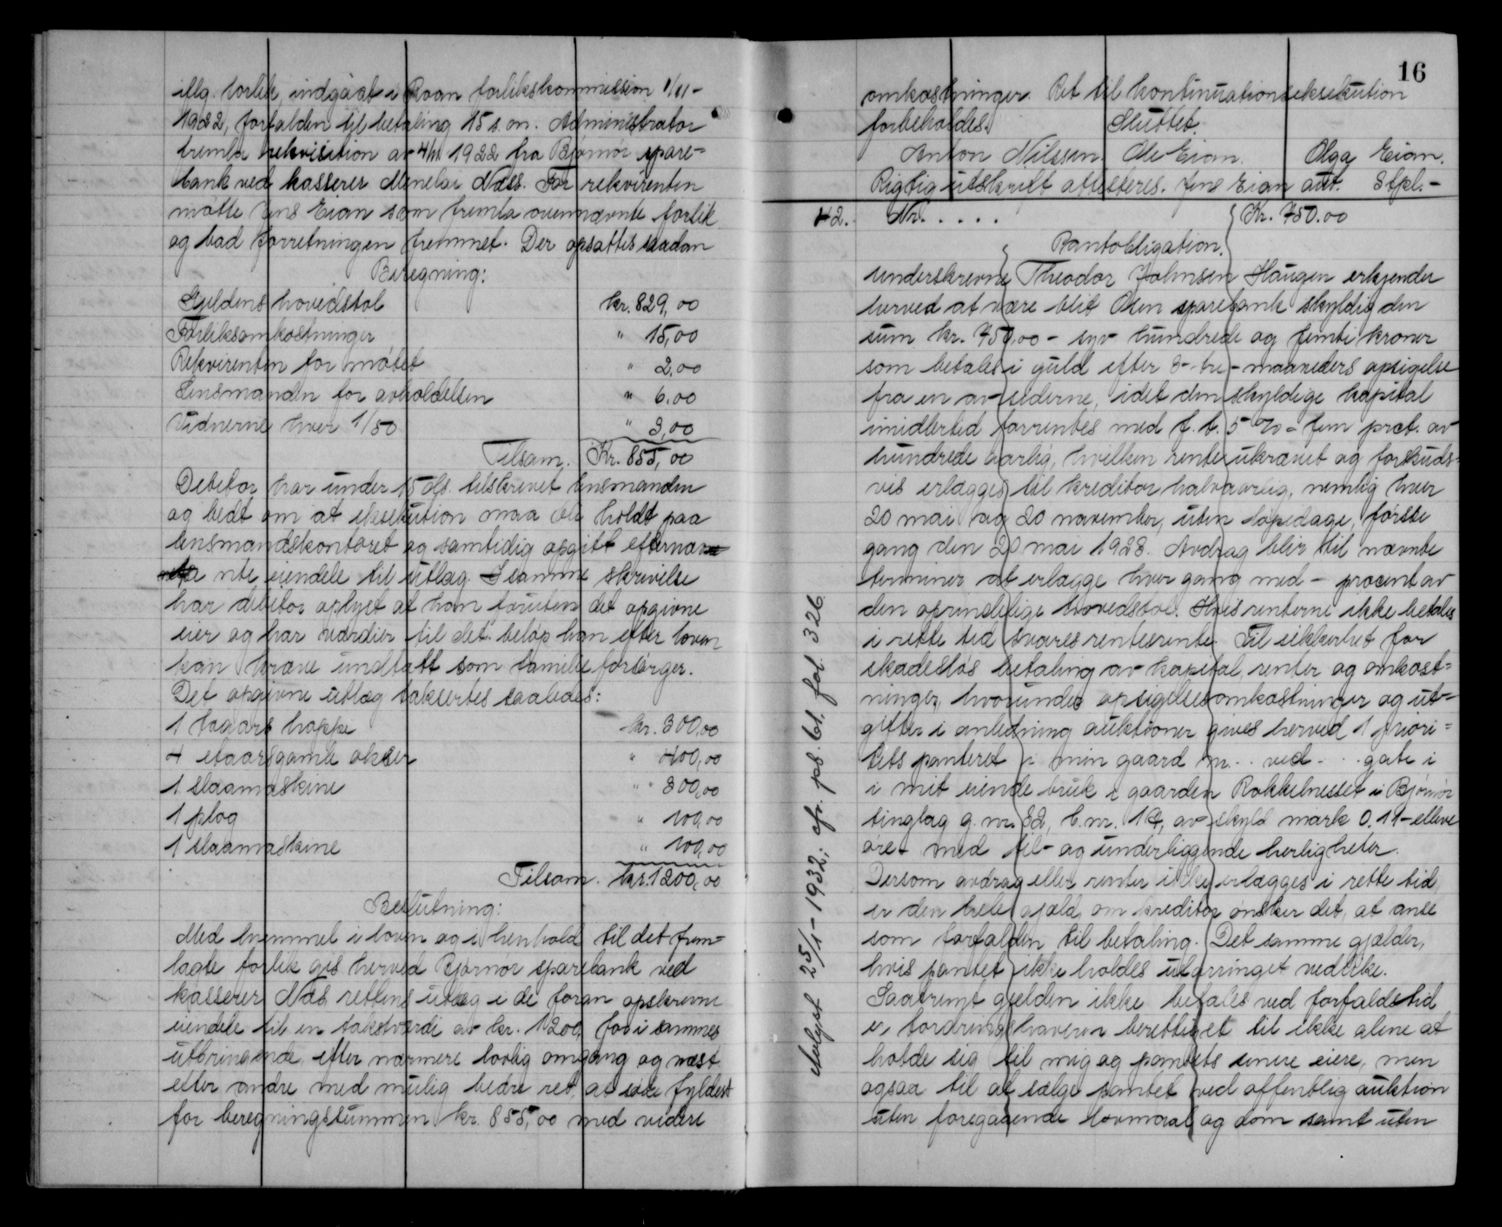 ifølg. forlik, indgåat i Roan forlikskommission 1/11-
1922, forfalden til betaling 15 s. m. Administrator
fremla rekvisition av 4/12 1922 fra Bjørnør spare-
bank ved kasserer Menelai Næss. For rekvirenten
møtte Jens Eian som fremla ovennævnte forlik
og bad forretningen fremmet. Der opsattes saadan
Beregning:
Gjeldens hovedstol kr. 829,00
Forliksomkostninger " 15,00
Rekvirenten for møtet " 2,00
Lensmanden for avholdelsen " 6,00
Vidnerne hver 1/50 " 3,00
Tilsam. Kr. 855,00
Debitor har under 15 ds. tilskrevet lensmanden
og bedt om at eksekution maa bli holdt paa
lensmandskontoret og samtidig opgitt efternæv
nte eiendele til utlæg. I samme skrivelse
har debitor oplyst at han foruten det opgivne
eier og har værdier til det beløp han efter loven
kan kræve undtatt som familieforsørger.
Det opgivne utlæg taksertes saaledes:
1 fagars hoppe kr. 300,00
4 etaarsgamle okser " 400,00
1 slaamaskine " 300,00
1 plog " 100,00
1 slaamaskine " 100,00
Tilsam. kr. 1200,00
Beslutning:
Med hjemmel i loven og i henhold til det frem-
lagte forlik gis herved Bjørnør sparebank ved
kasserer Næs rettens utlæg i de foran opskrevne
eiendele til en takstværdi av kr. 1200, for i sammes
utbringende efter nærmere lovlig omgang og næst
efter andre med mulig bedre ret, at søke fyldest
for beregningssummen kr. 855,00 med videre
16
omkostninger. Ret til kontinuationseksekution
forbeholdes. Sluttet.
Anton Nilssen. Ole Eian. Olga Eian.
Rigtig utskrift attesteres. Jens Eian aut. Sfpl.-
42. Nr. . . . . Kr. 750.00
Pantobligation.
Underskrevne Theodor Johnsen Haugen erkjender
herved at være blit Osen sparebank skyldig den
sum kr. 750,00 - syv hundrede og femti kroner
som betales i guld efter 3- tre - maaneders opsigelse
fra en av siderne, idet den skyldige kapital
imidlertid forrentes med f. t. 5 % - fem prct. av
hundrede aarlig, hvilken rente ukrævet og forskuds-
vis erlægges til kreditor halvaarlig, nemlig hver
20 mai og 20 november, uten løpedage, første
gang den 20 mai 1923. Avdrag blir til nævnte
terminer at erlægge hver gang med - procent av
den oprindelige hovedstol. Hvis renterne ikke betales
i rette tid svares rentesrente. Til sikkerhet for
skadesløs betaling av kapital, renter og omkost-
ninger, hvorunder opsigelsesomkostninger og ut-
gifter i anledning auktioner gives herved 1 priori-
tets panteret i min gaard nr. . . ved - . . gate i
i mit eiende bruk i gaarden Rokkelnesset i Bjørnør
tinglag g. nr. 32, b. nr. 14, av skyld mark 0.11 - elleve
øre - med til- og underliggende herligheter.
Dersom avdrag eller renter ikke erlægges i rette tid,
er den hele gjæld, om kreditor ønsker det, at anse
som forfalden til betaling. Det samme gjælder,
hvis pantet ikke holdes uforringet vedlike.
Saafremt gjelden ikke betales ved forfaldstid
er fordringshaveren berettiget til ikke alene at
holde sig til mig og pantets senere eiere, men
ogsaa til at sælge pantet ved offentlig auktion
uten foregaaende lovmaal og dom samt uten
Avlyst 25/1-1932; cfr. pb. bl. fol. 326.